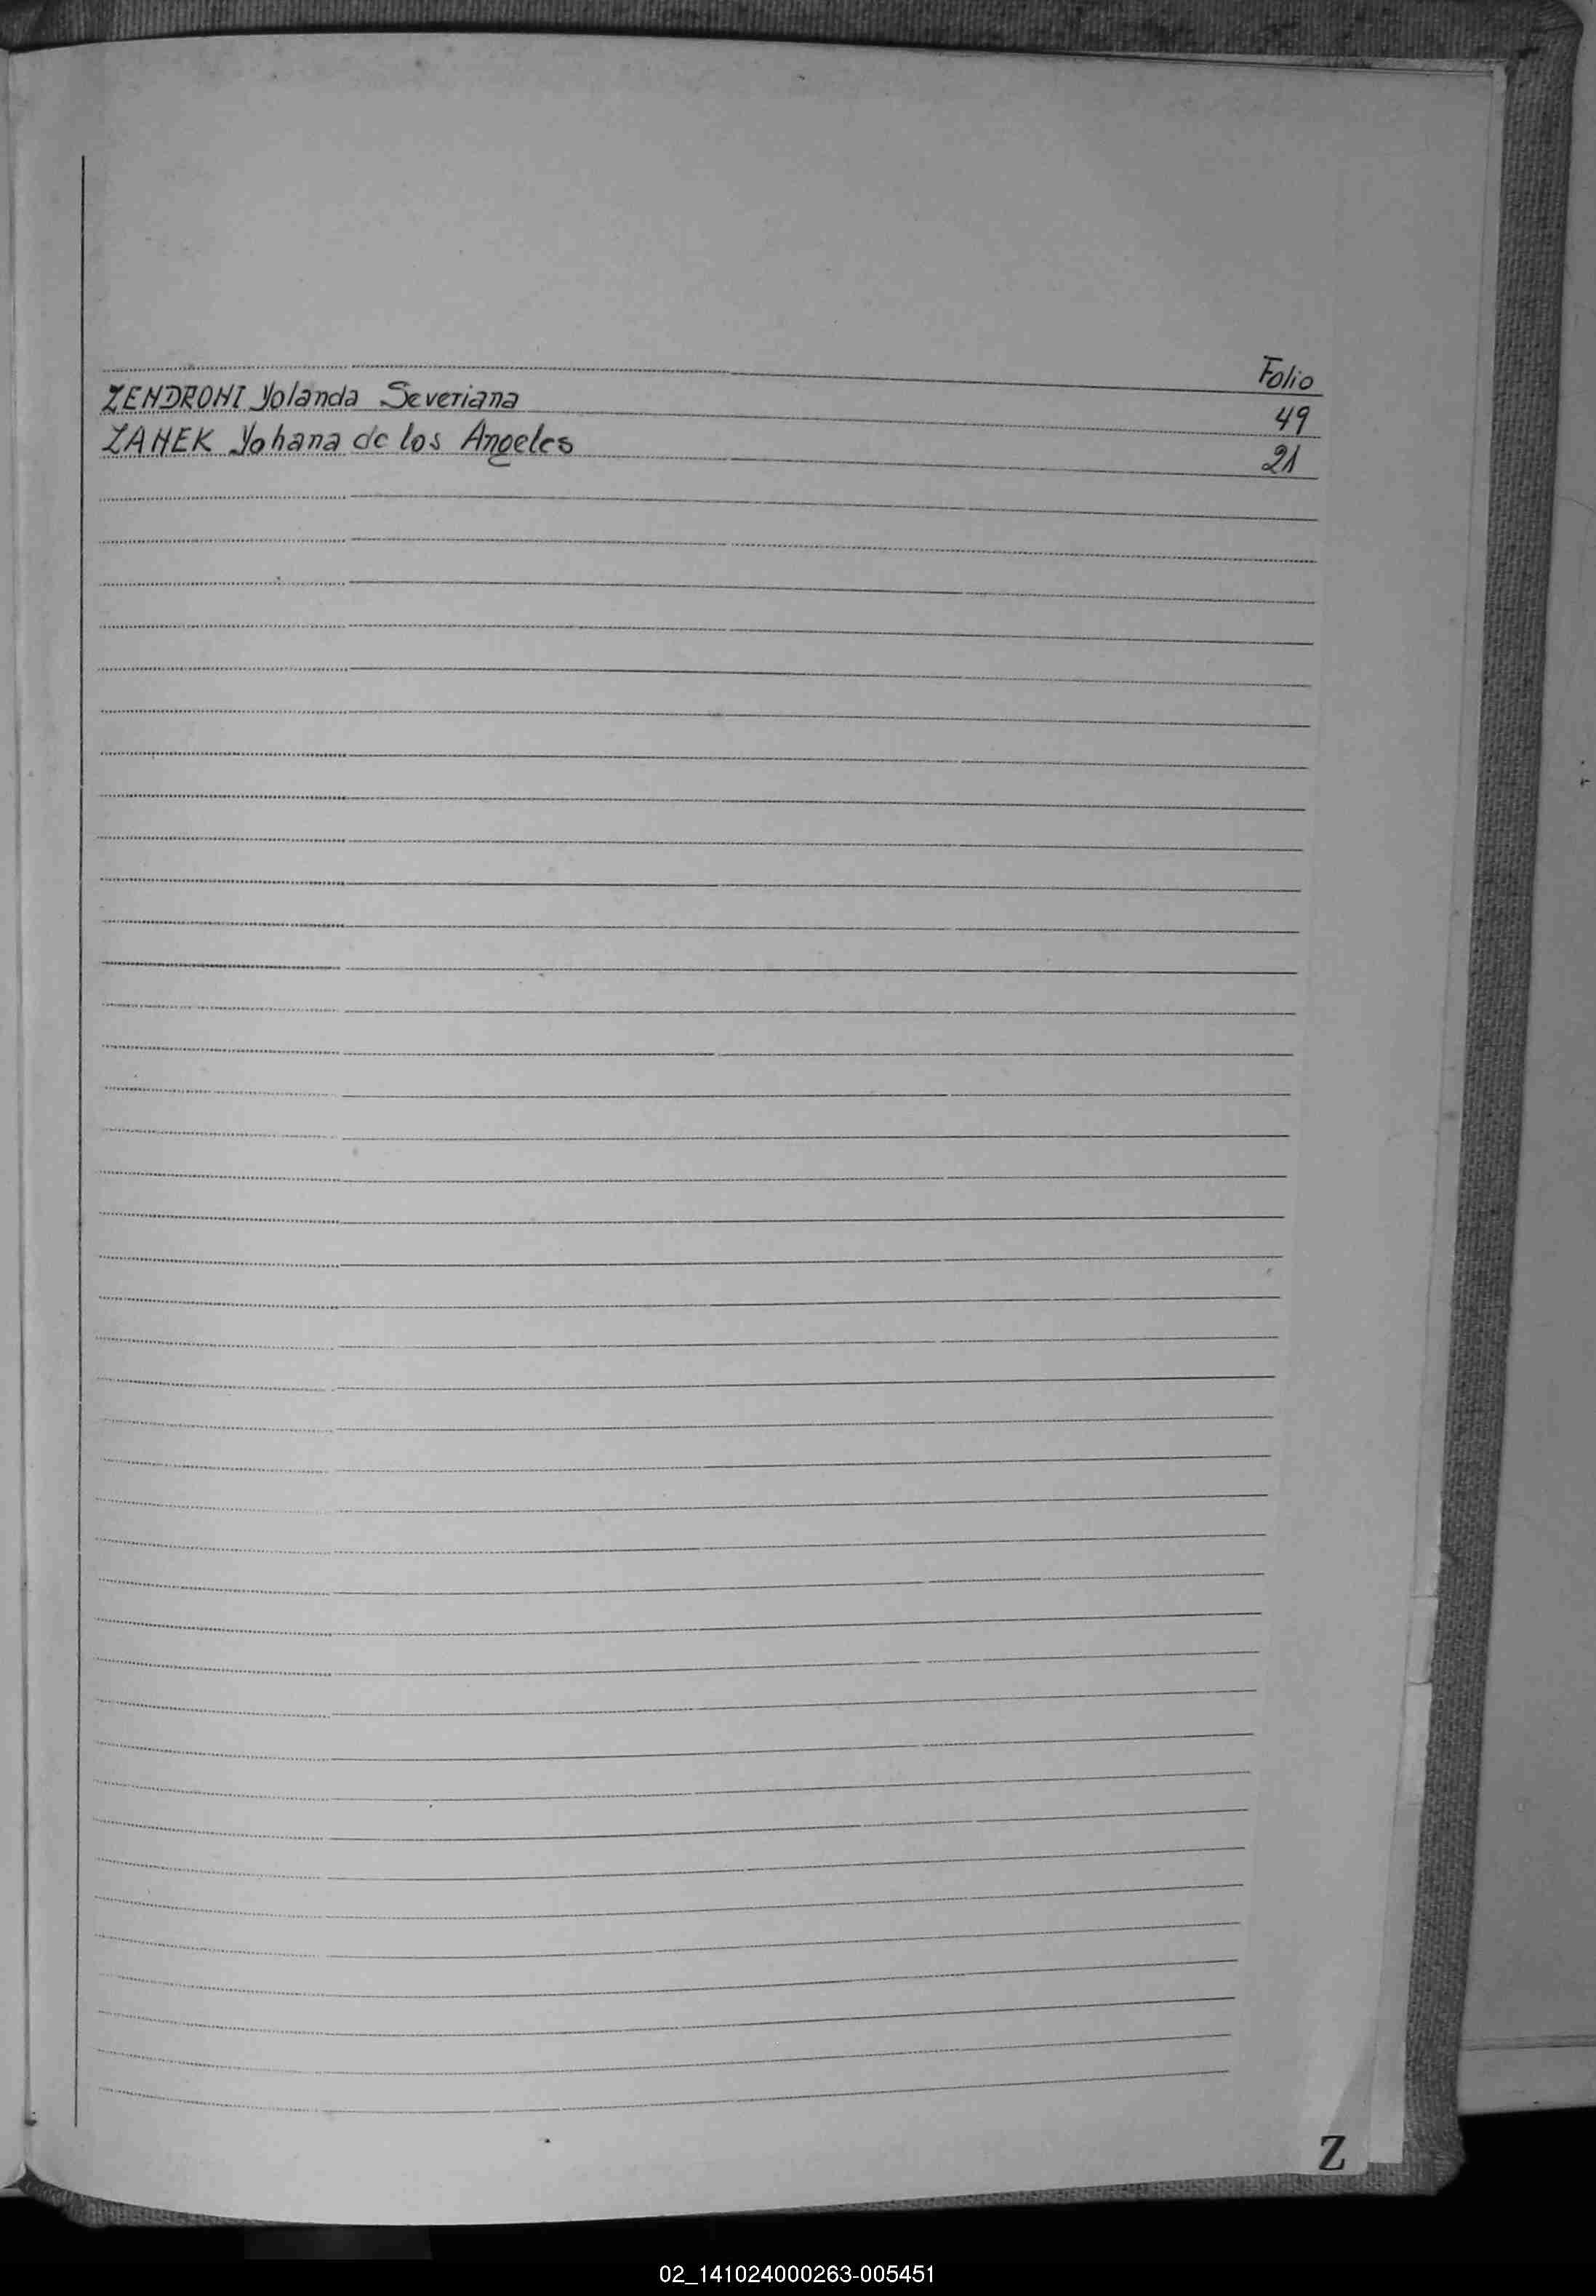 Folio
ZENDRONI Yolanda Severiana 49
ZANEK Yohana de los Angeles 21
Z
02_141024000263-005451